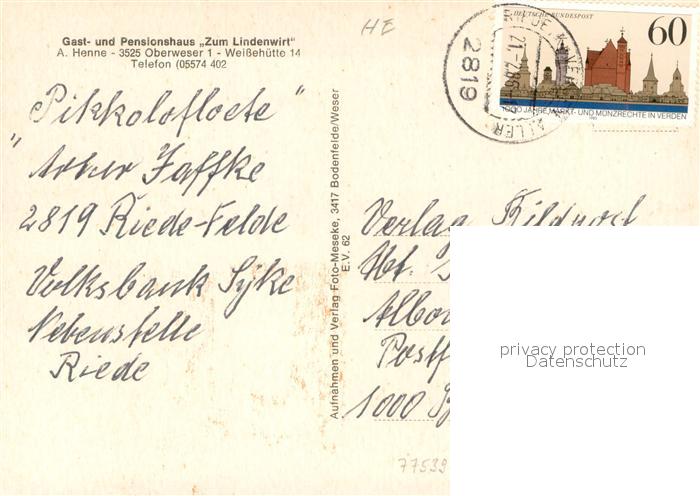 Gast- und Pensionshaus „Zum Lindenwirt"
A. Henne - 3525 Oberweser 1 - Weißehütte 14
Telefon (05574 402
HE
"Pikkolofloete"
Jaffke
2819 Riede-Felde
Volksbank Syke
Nebenstelle
Riede
Aufnahmen und Verlag Foto-Meseke, 3417 Bodenfelde/Weser
E.V. 62
DEUTSCHE BUNDESPOST
60
1000 JAHRE MARKT- UND MÜNZRECHTE IN VERDEN
2819
ALLER
Verlag
Abt.
Postf
1000
77539
privacy protection
Datenschutz